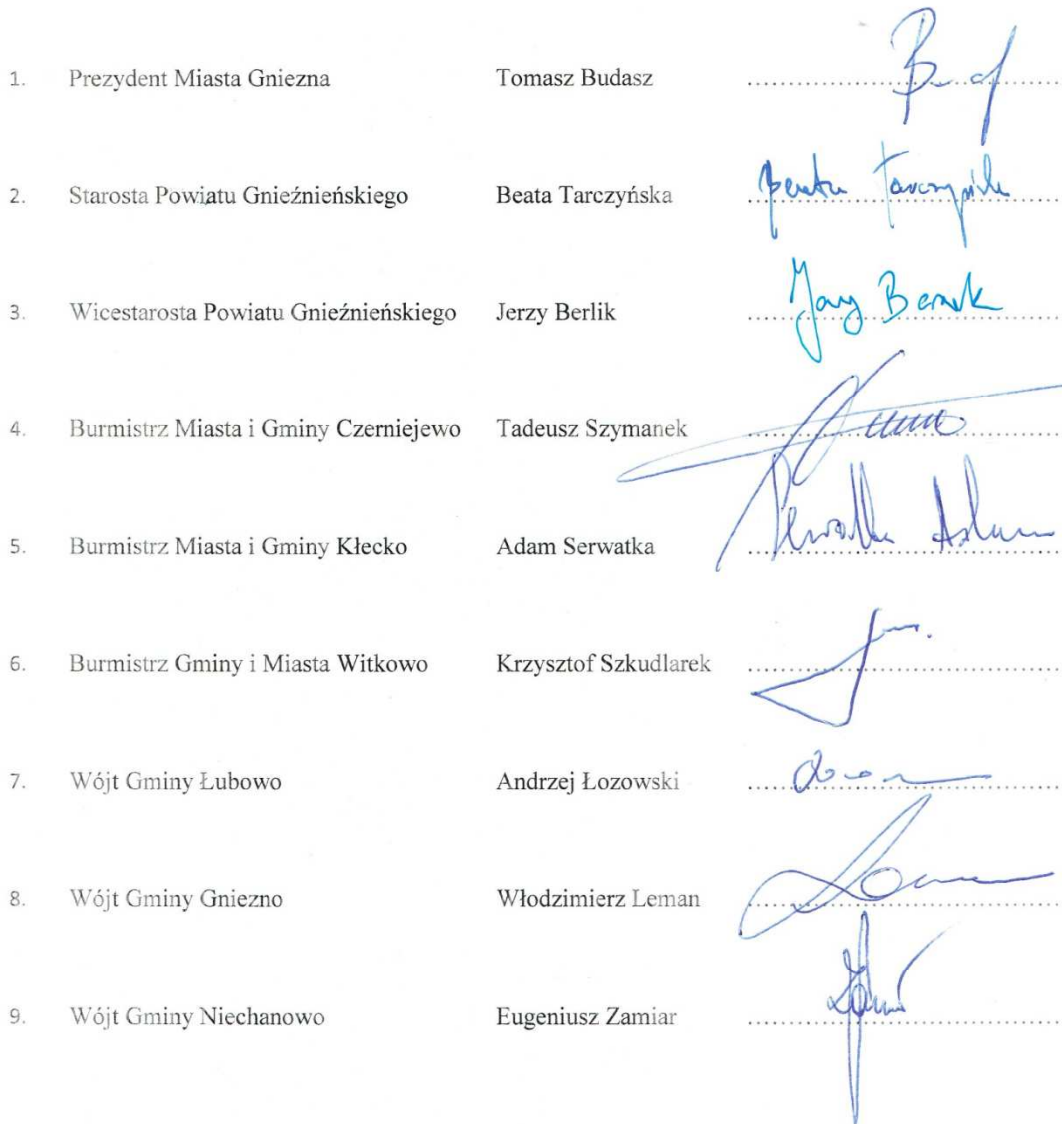 1. Prezydent Miasta Gniezna Tomasz Budasz
2. Starosta Powiatu Gnieźnieńskiego Beata Tarczyńska Beata Tarczyńska
3. Wicestarosta Powiatu Gnieźnieńskiego Jerzy Berlik Jerzy Berlik
4. Burmistrz Miasta i Gminy Czerniejewo Tadeusz Szymanek
5. Burmistrz Miasta i Gminy Kłecko Adam Serwatka Serwatka Adam
6. Burmistrz Gminy i Miasta Witkowo Krzysztof Szkudlarek
7. Wójt Gminy Łubowo Andrzej Łozowski
8. Wójt Gminy Gniezno Włodzimierz Leman
9. Wójt Gminy Niechanowo Eugeniusz Zamiar